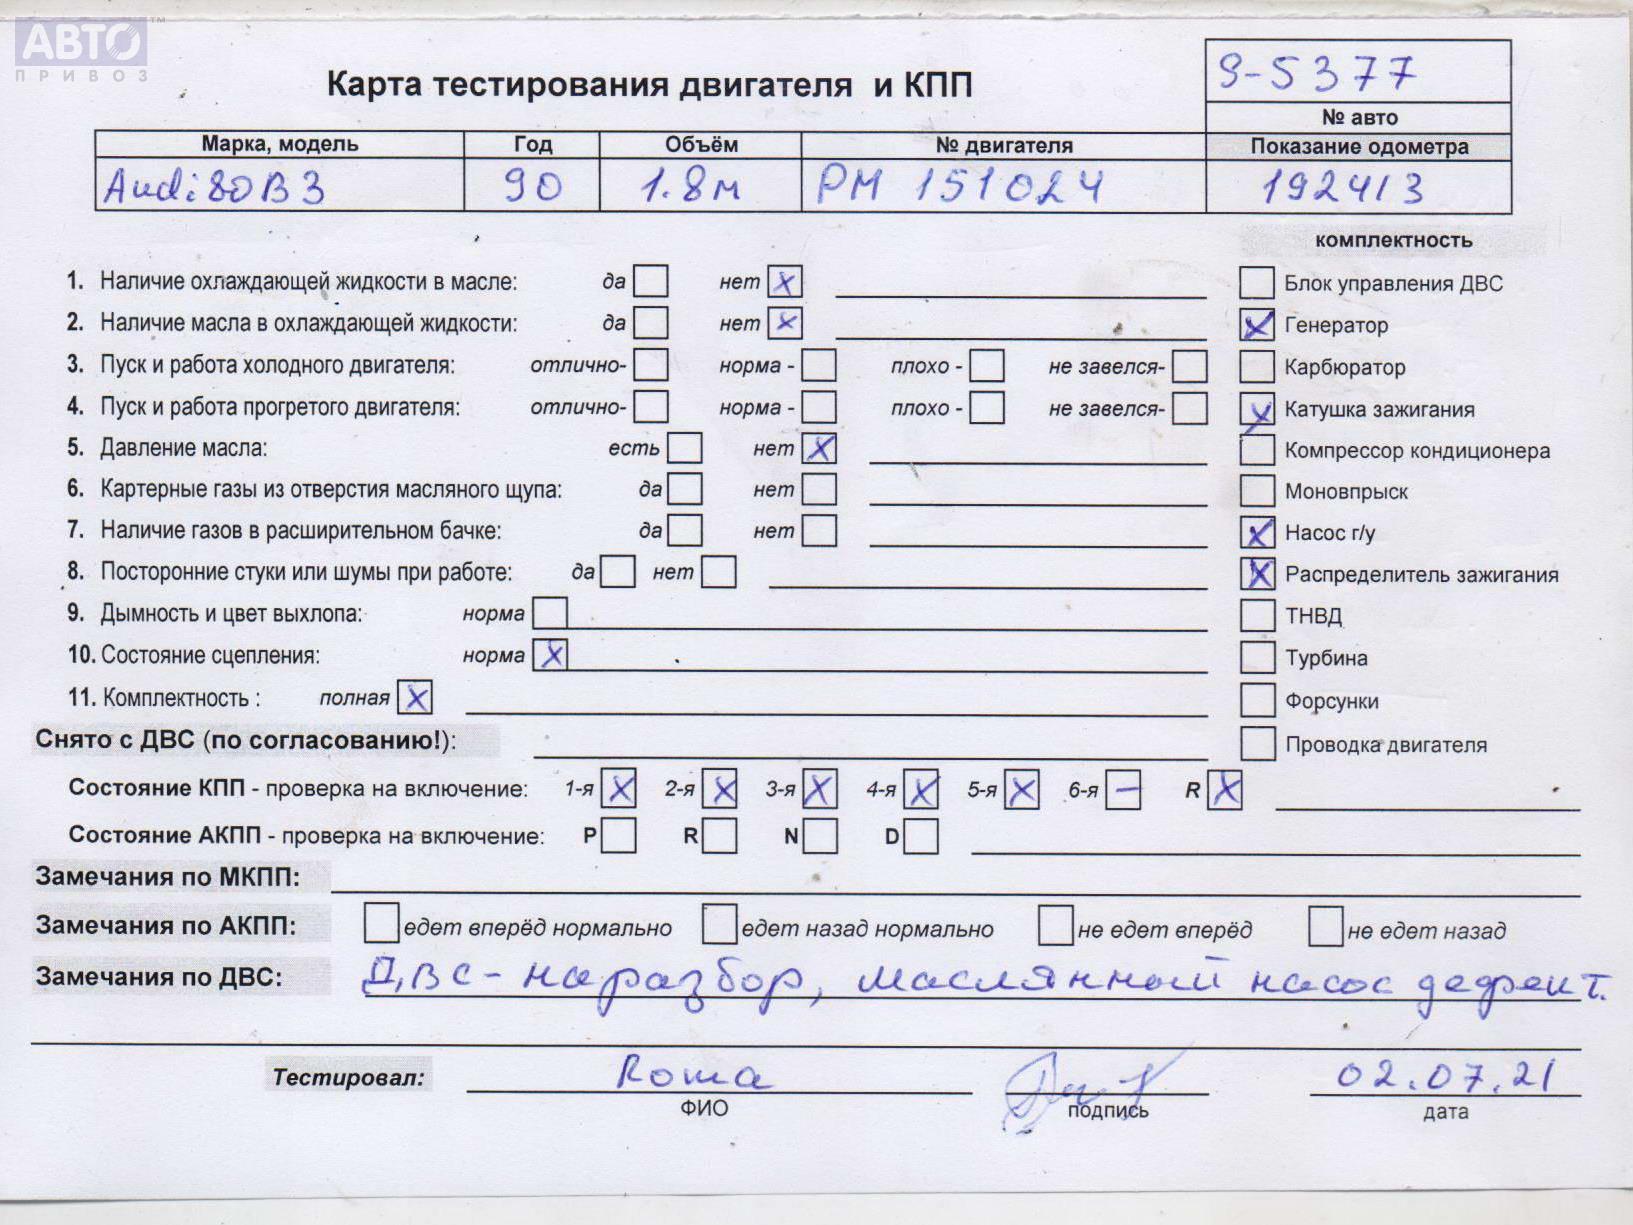 АВТО™
ПРИВОЗ
Карта тестирования двигателя и КПП
9-5377
№ авто
Марка, модель Год Объём № двигателя Показание одометра
Audi 80 B3 90 1.8м PM 151024 192413
комплектность
1. Наличие охлаждающей жидкости в масле: да нет x Блок управления ДВС
2. Наличие масла в охлаждающей жидкости: да нет x x Генератор
3. Пуск и работа холодного двигателя: отлично- норма - плохо - не завелся- Карбюратор
4. Пуск и работа прогретого двигателя: отлично- норма - плохо - не завелся- x Катушка зажигания
5. Давление масла: есть нет x Компрессор кондиционера
6. Картерные газы из отверстия масляного щупа: да нет Моновпрыск
7. Наличие газов в расширительном бачке: да нет x Насос г/у
8. Посторонние стуки или шумы при работе: да нет x Распределитель зажигания
9. Дымность и цвет выхлопа: норма ТНВД
10. Состояние сцепления: норма x Турбина
11. Комплектность : полная x Форсунки
Снято с ДВС (по согласованию!): Проводка двигателя
Состояние КПП - проверка на включение: 1-я x 2-я x 3-я x 4-я x 5-я x 6-я – R x
Состояние АКПП - проверка на включение: P R N D
Замечания по МКПП:
Замечания по АКПП: едет вперёд нормально едет назад нормально не едет вперёд не едет назад
Замечания по ДВС: ДВС - на разбор, маслянный насос дефект.
Тестировал: Roma 02.07.21
ФИО подпись дата